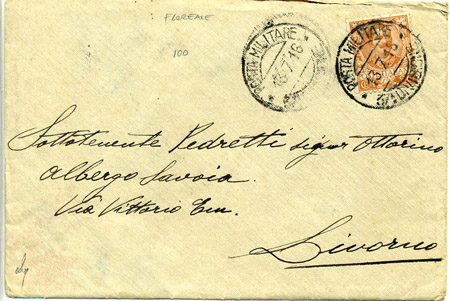 FLOREALE
100
POSTA MILITARE
13.7.16
POSTA MILITARE
13.7.16
Sottotenente Pedretti signor Ottorino
Albergo Savoia
Via Vittorio Em.
Livorno